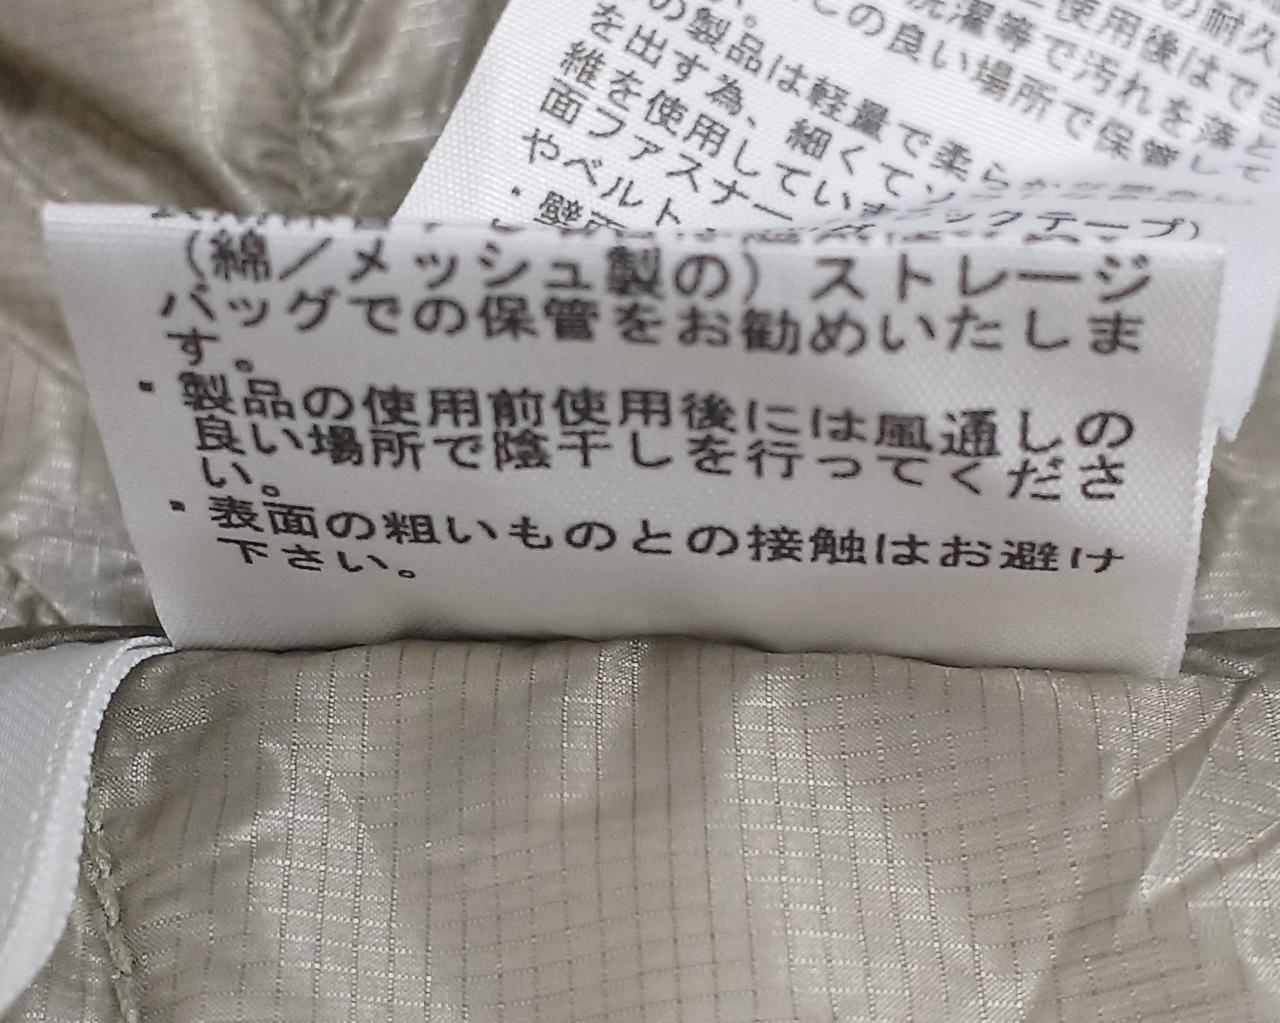 の耐久
使用後はできる
洗濯等で汚れを落と
しの良い場所で保管して
の製品は軽量で柔ら
を出す為、細くてソ
維を使用してい
面ファスナー
ックテープ）
やベルト
・壁面
（綿／メッシュ製の）ストレージ
バッグでの保管をお勧めいたしま
す。
・製品の使用前使用後には風通しの
良い場所で陰干しを行ってくださ
い。
・表面の粗いものとの接触はお避け
下さい。